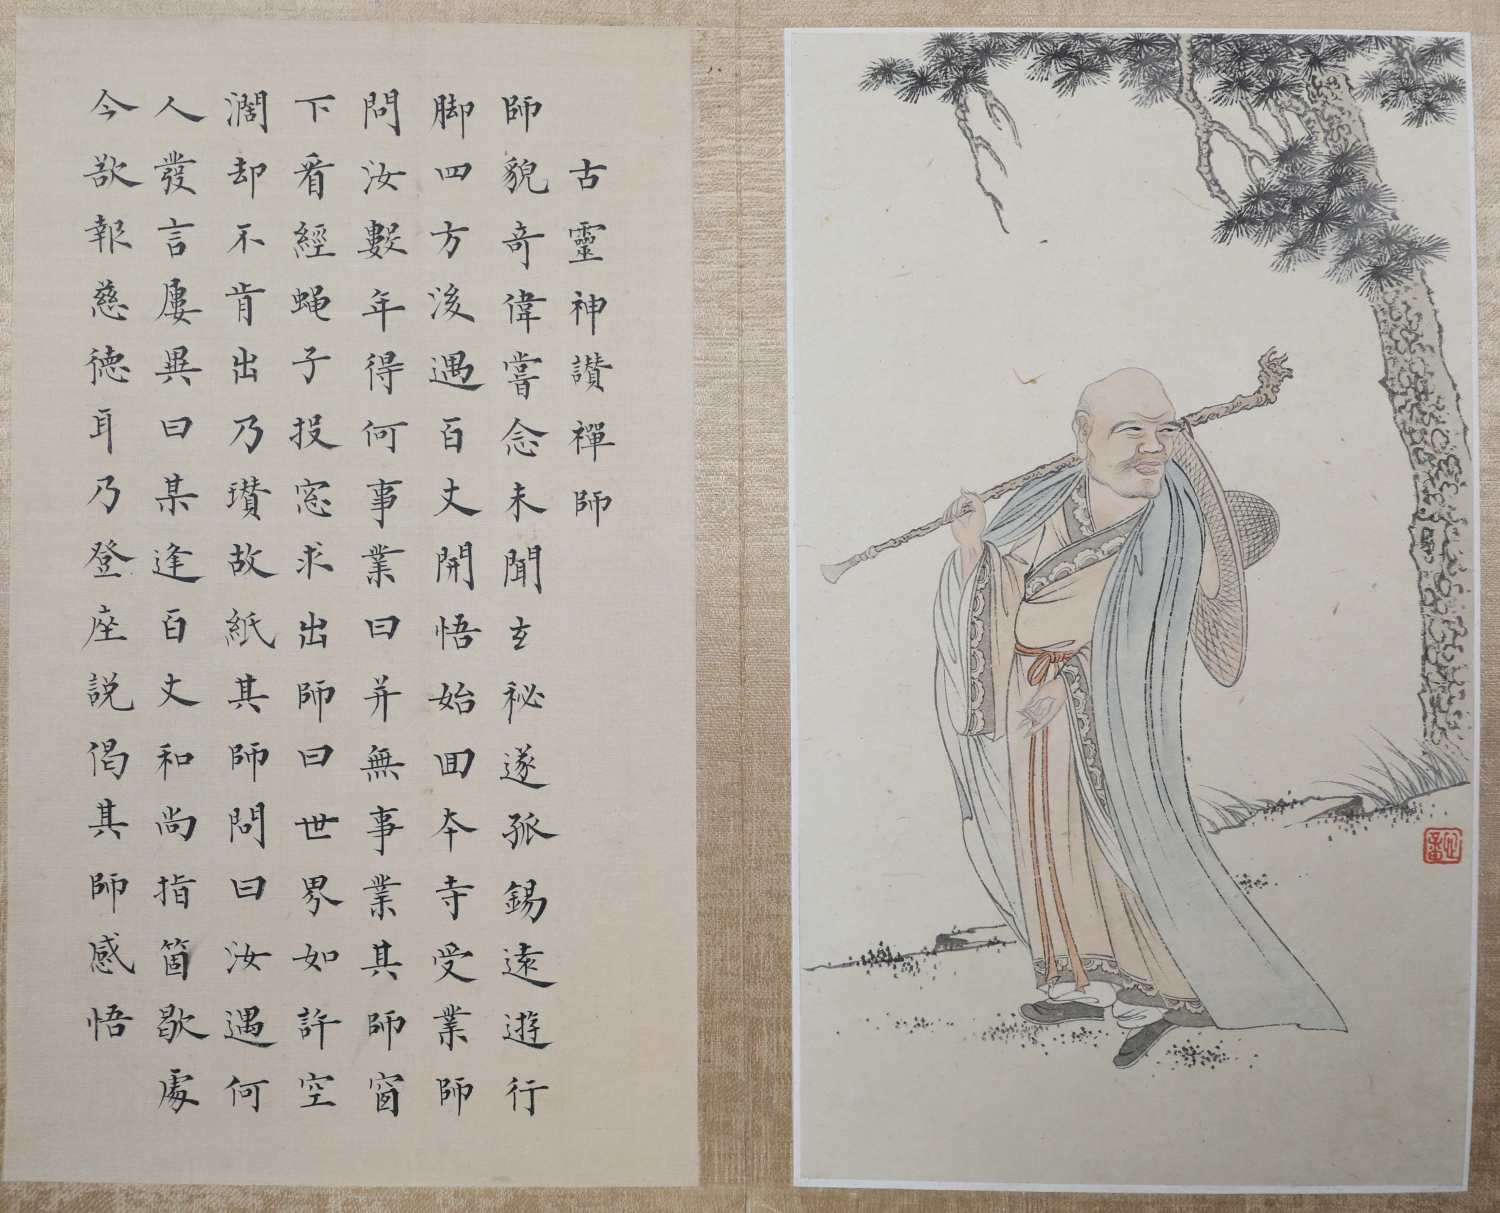 古靈神讚禪師
師貌奇偉嘗念未聞玄秘遂孤錫遠遊行
脚四方後遇百丈開悟始回本寺受業師
問汝數年得何事業曰并無事業其師窗
下看經蝇子投窓求出師曰世界如許空
濶却不肯出乃瓚故紙其師問曰汝遇何
人發言屢異曰某逢百丈和尚指箇歇處
今欲報慈德耳乃登座説偈其師感悟